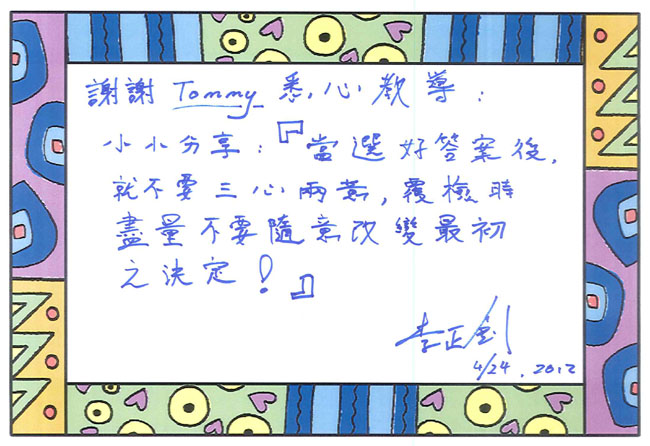 謝謝 Tommy 悉心教導:
小小分享:『當選好答案後,
就不要三心兩意,覆檢時
盡量不要隨意改變最初
之決定!』
李正釗
4/24, 2012